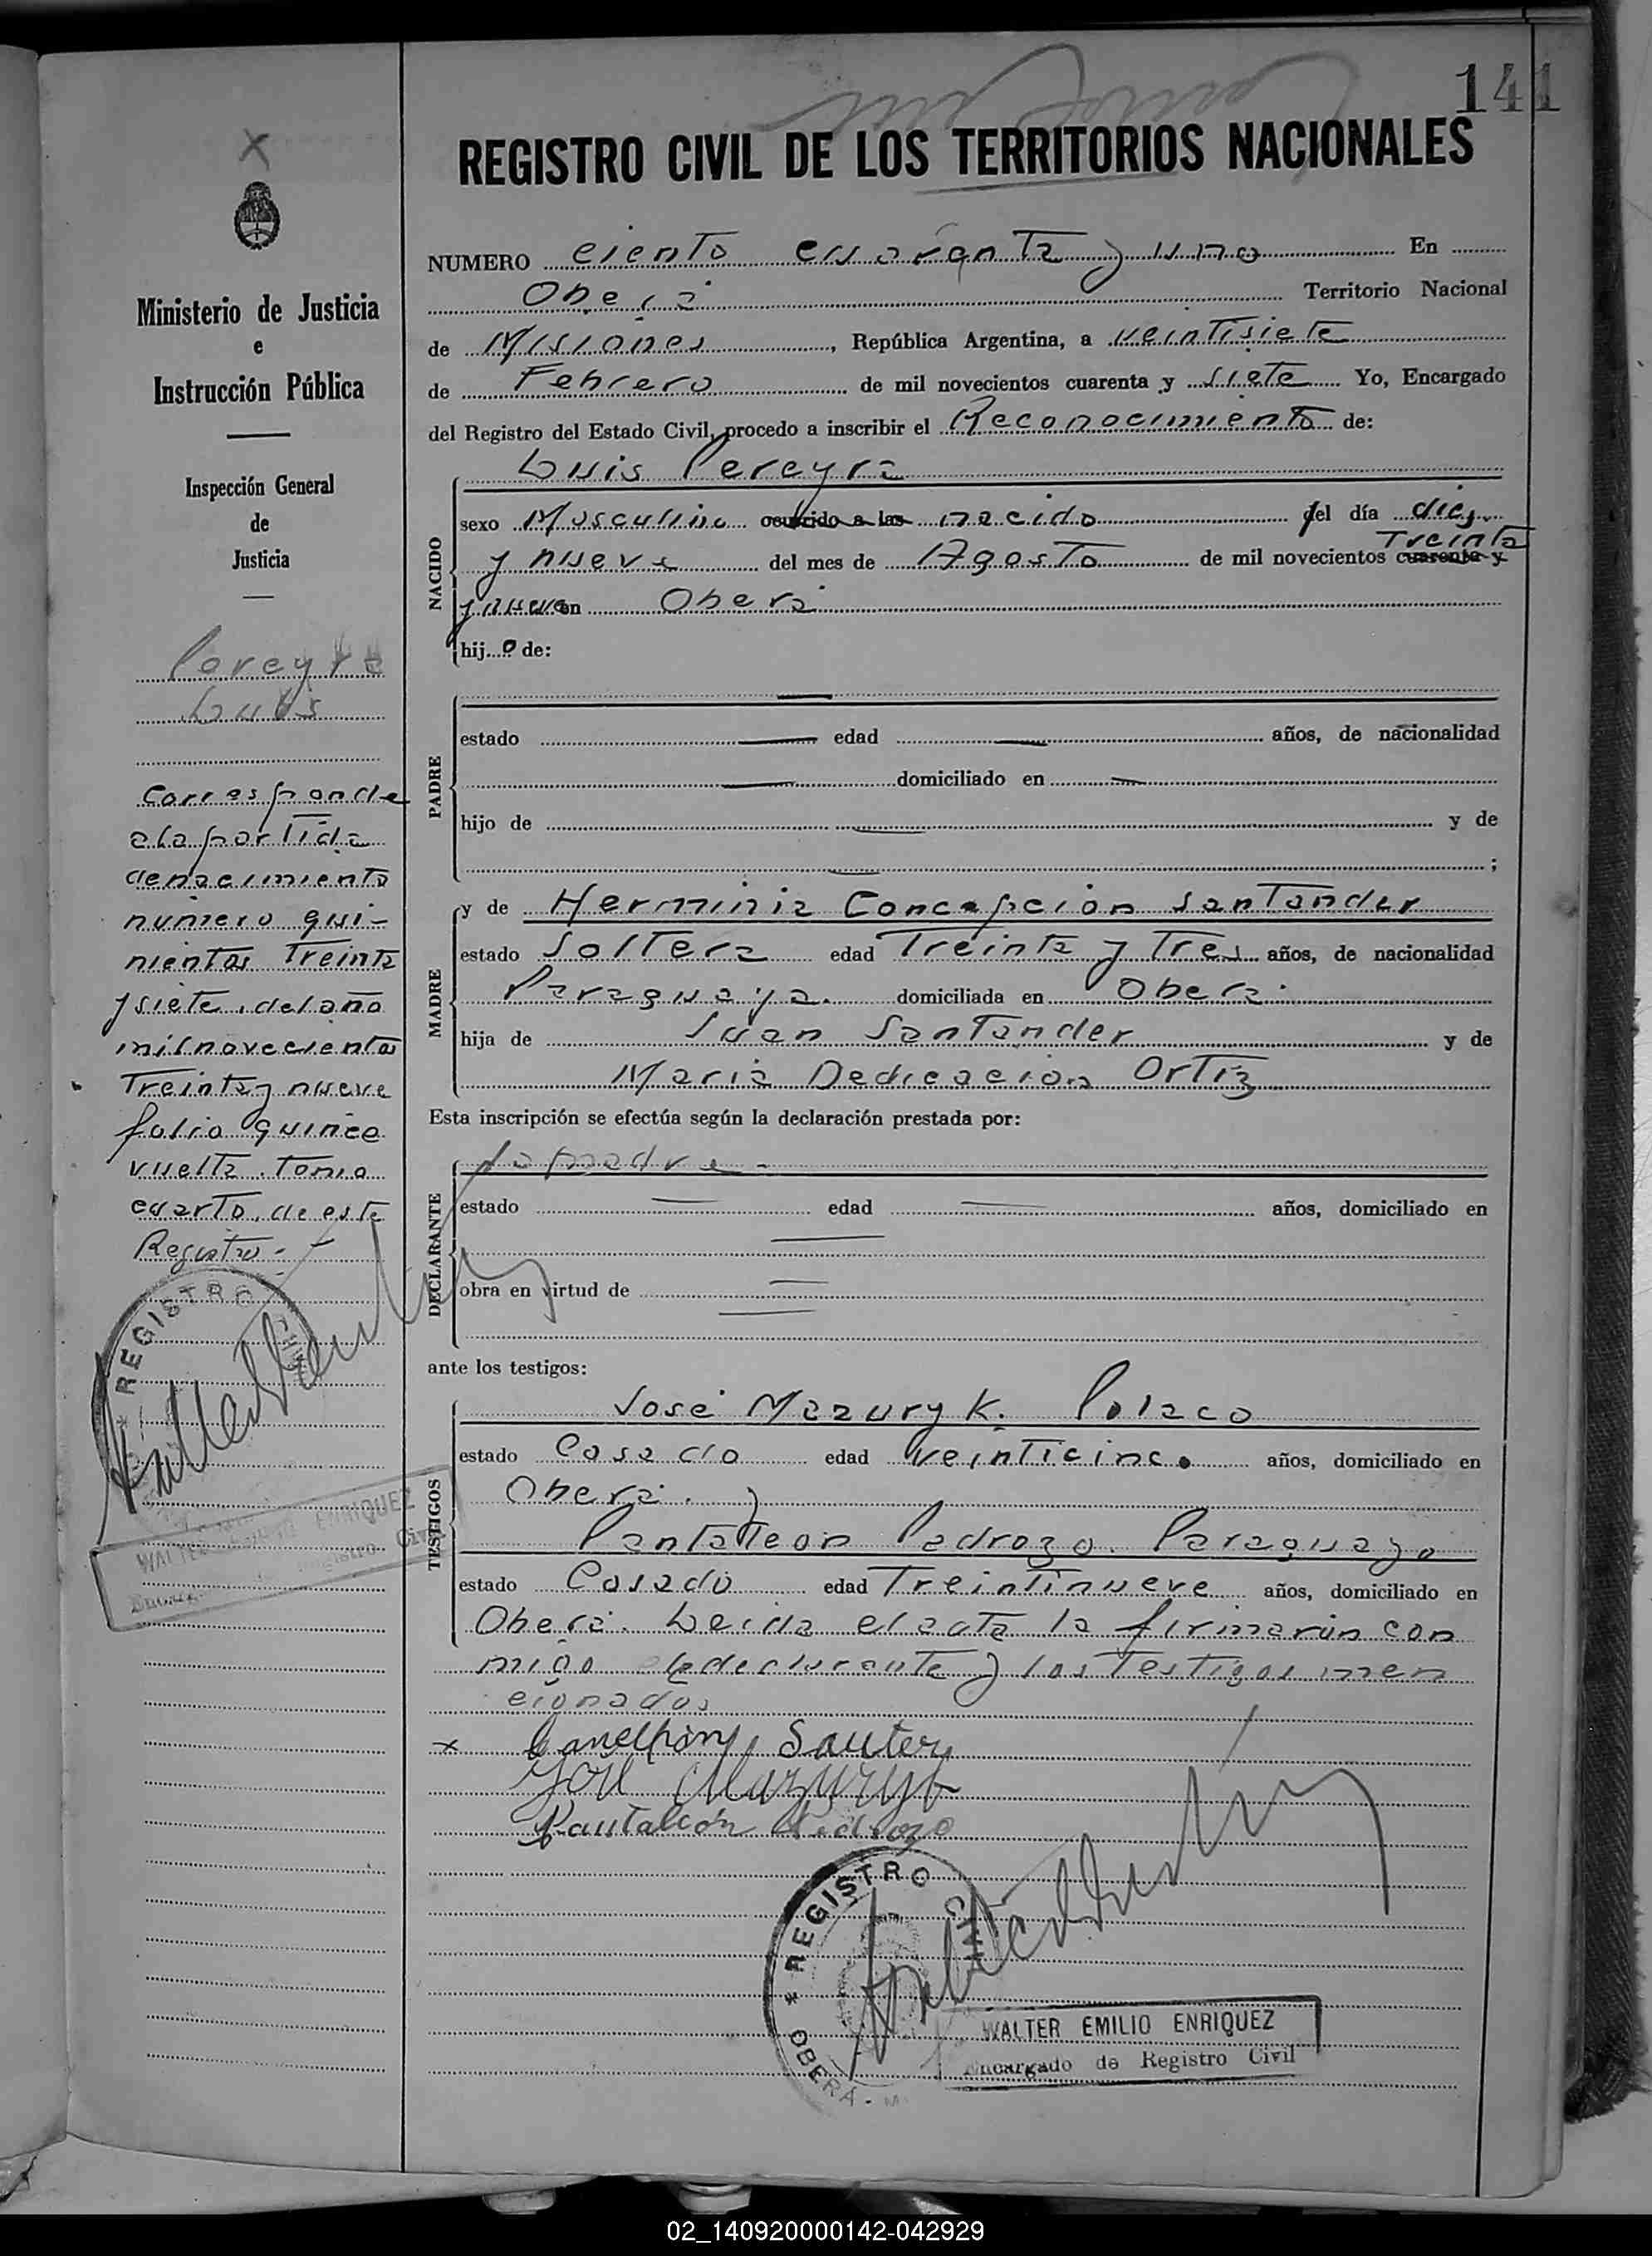 141
REGISTRO CIVIL DE LOS TERRITORIOS NACIONALES
Ministerio de Justicia
e
Instrucción Pública
Inspección General
de
Justicia
Pereyra
Luis
Corresponde
a la partida
de nacimiento
número qui-
nientos Treinta
y siete, del año
mil novecientos
Treinta y nueve
folio quince
vuelta. Tomo
cuarto, de este
Registro.-
REGISTRO CIVIL
WALTER EMILIO ENRIQUEZ
Encargado de Registro Civil
NUMERO ciento cuarenta y uno En
Oberá Territorio Nacional
de Misiones, República Argentina, a veintisiete
de Febrero de mil novecientos cuarenta y siete Yo, Encargado
del Registro del Estado Civil, procedo a inscribir el Reconocimiento de:
Luis Pereyra
NACIDO
sexo Masculino ocurrido a las nacido del día diez
y nueve del mes de Agosto de mil novecientos cuarenta y Treinta
y nueve en Oberá
hijo de:
PADRE
estado edad años, de nacionalidad
domiciliado en
hijo de y de
;
MADRE
y de Herminia Concepción Santander
estado Soltera edad Treinta y Tres años, de nacionalidad
Paraguaya. domiciliada en Oberá
hija de Juan Santander y de
Maria Dedicación Ortiz
Esta inscripción se efectúa según la declaración prestada por:
DECLARANTE
la madre.-
estado edad años, domiciliado en
obra en virtud de
ante los testigos:
TESTIGOS
José Mazuryk. Polaco
estado Casado edad veinticinco años, domiciliado en
Oberá. y
Pantaleón Pedrozo. Paraguayo
estado Casado edad Treintinueve años, domiciliado en
Oberá. Leida el acta la firmarón con
migo la declarante y los Testigos men
cionados
x
José Mazuryk
Pantaleón Pedrozo
REGISTRO CIVIL
OBERÁ - M
WALTER EMILIO ENRIQUEZ
Encargado de Registro Civil
02_140920000142-042929